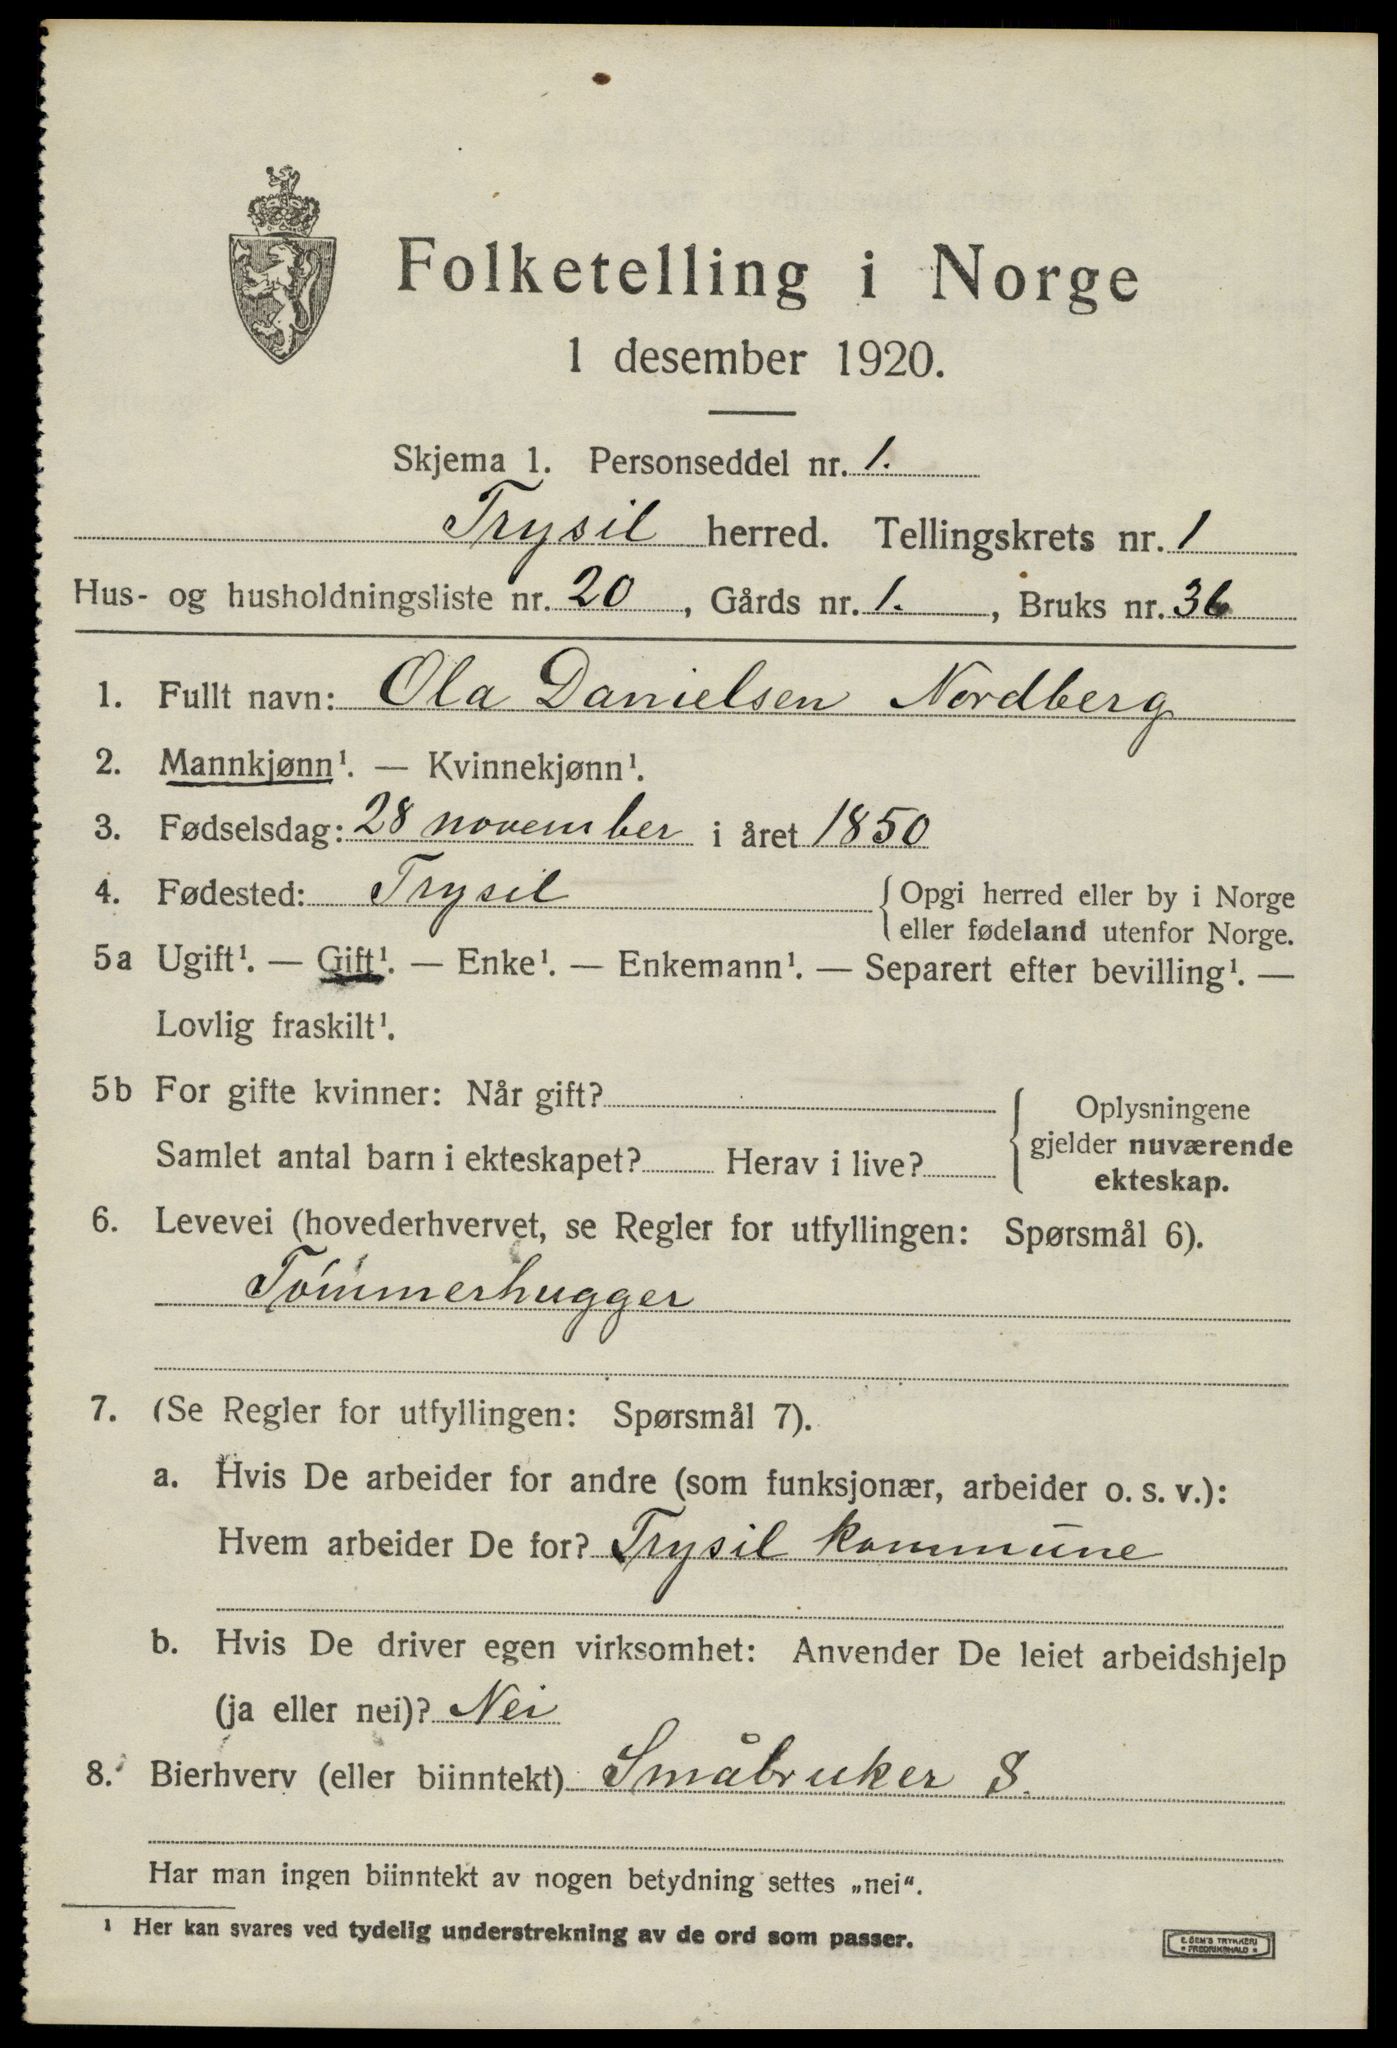 Folketelling i Norge
1 desember 1920.
Skjema 1. Personseddel nr. 1.
Trysil herred. Tellingskrets nr. 1
Hus- og husholdningsliste nr. 20, Gårds nr. 1., Bruks nr. 36
1. Fullt navn: Ola Danielsen Nordberg
2. Mannkjønn¹. — Kvinnekjønn¹.
3. Fødselsdag: 28 november i året 1850
4. Fødested: Trysil { Opgi herred eller by i Norge
eller fødeland utenfor Norge.
5a Ugift¹. — Gift¹. — Enke¹. — Enkemann¹. — Separert efter bevilling¹. —
Lovlig fraskilt¹.
5b For gifte kvinner: Når gift?
Samlet antal barn i ekteskapet? Herav i live?
{ Oplysningene
gjelder nuværende
ekteskap.
6. Levevei (hovederhvervet, se Regler for utfyllingen: Spørsmål 6).
Tømmerhugger
7. (Se Regler for utfyllingen: Spørsmål 7).
a. Hvis De arbeider for andre (som funksjonær, arbeider o. s. v.):
Hvem arbeider De for? Trysil kommune
b. Hvis De driver egen virksomhet: Anvender De leiet arbeidshjelp
(ja eller nei)? Nei
8. Bierhverv (eller biinntekt) Småbruker S.
Har man ingen biinntekt av nogen betydning settes „nei".
¹ Her kan svares ved tydelig understrekning av de ord som passer.
E. SEM'S TRYKKERI
* FREDRIKSHALD *